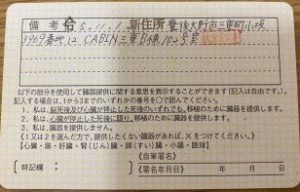 備考 令5.11.1 新住所 豊後大野市三重町小坂
3942番地12 CABIN三重B棟102号室
以下の部分を使用して臓器提供に関する意思を表示することができます(記入は自由です。)
記入する場合は、1から3までのいずれかの番号を○で囲んでください。
1. 私は、脳死後及び心臓が停止した死後のいずれでも、移植のために臓器を提供します。
2. 私は、心臓が停止した死後に限り、移植のために臓器を提供します。
3. 私は、臓器を提供しません。
《1又は2を選んだ方で、提供したくない臓器があれば、×をつけてください。》
【心臓・肺・肝臓・腎(じん)臓・膵(すい)臓・小腸・眼球】
〔特記欄: 〕
《自筆署名》
《署名年月日》 年 月 日